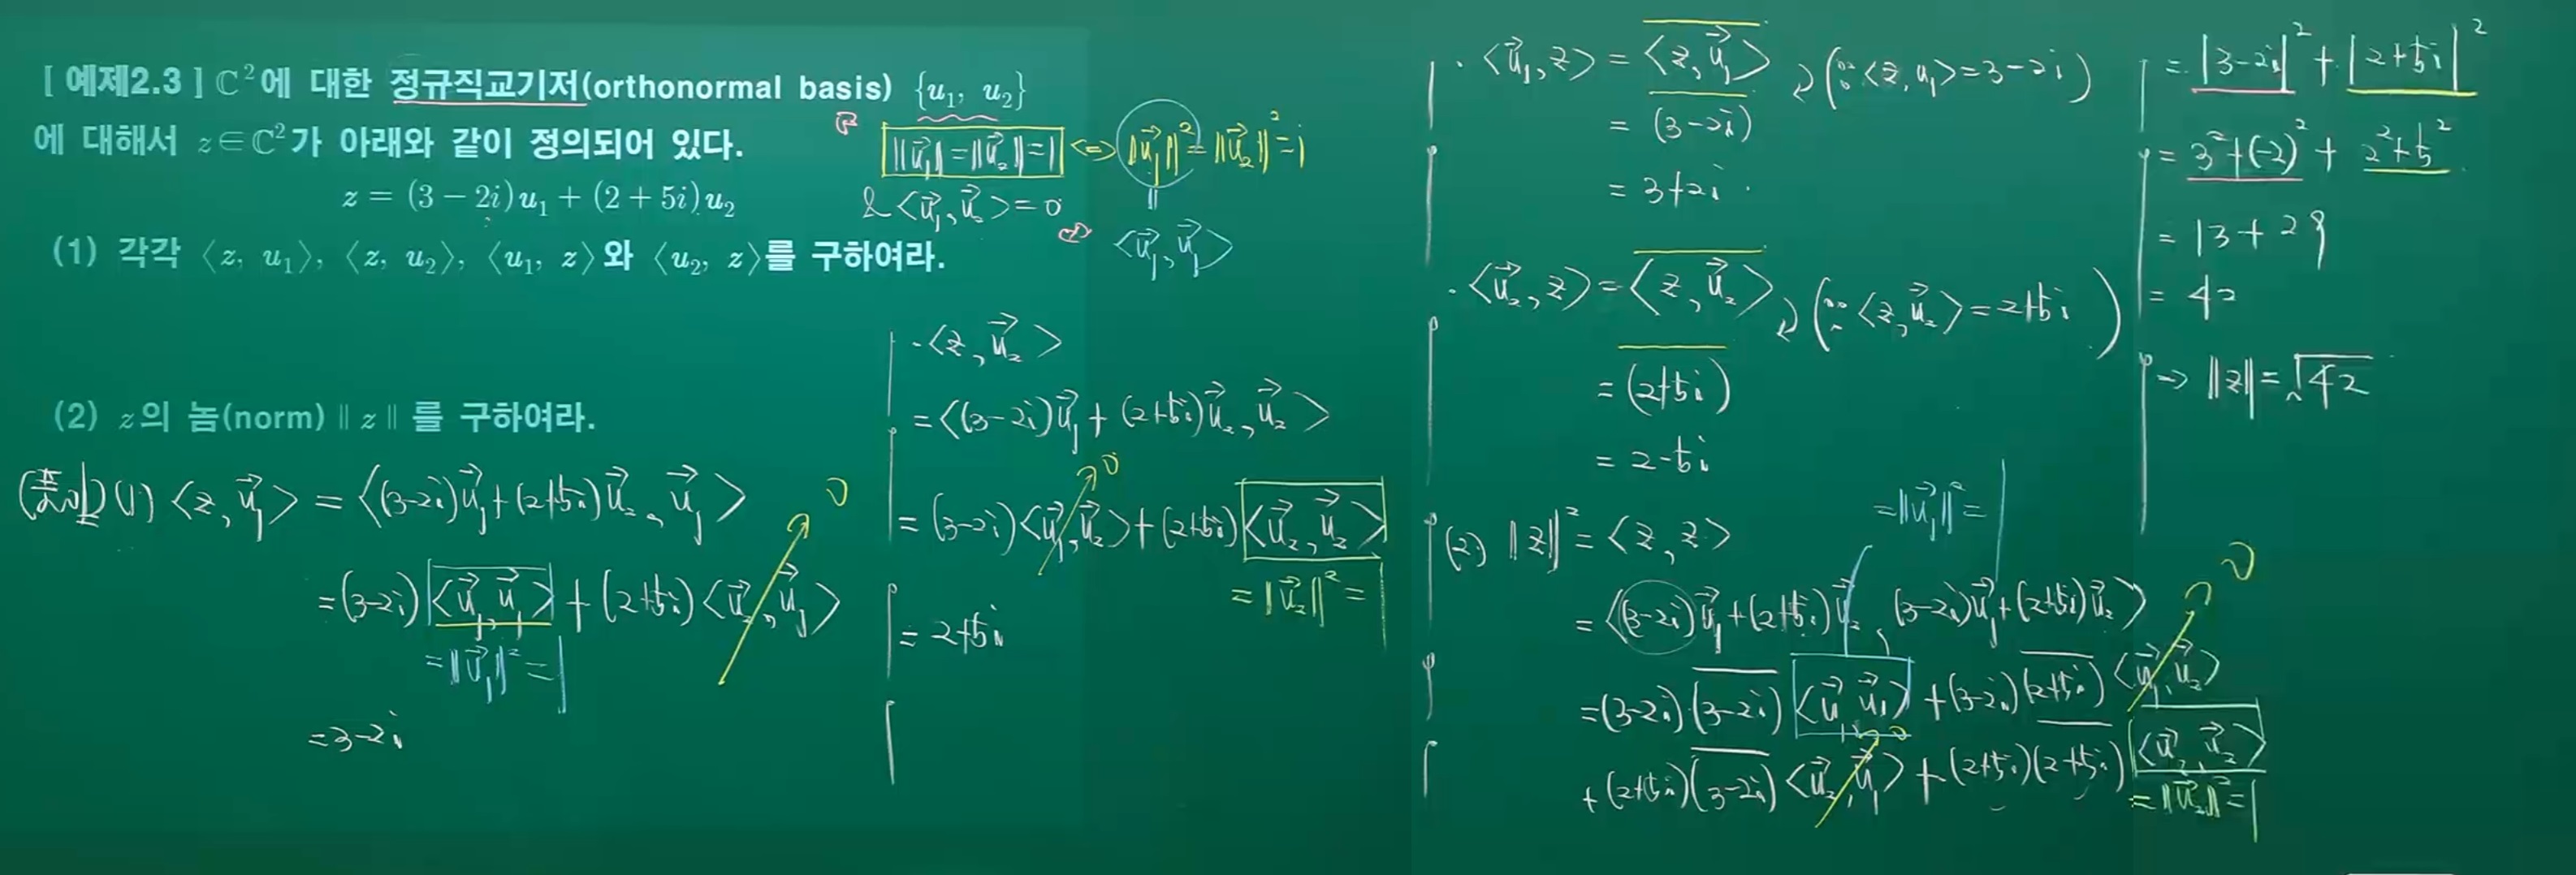 [ 예제2.3 ] ℂ²에 대한 정규직교기저(orthonormal basis) {u₁, u₂}
에 대해서 z∈ℂ²가 아래와 같이 정의되어 있다.
z = (3 − 2i)u₁ + (2 + 5i)u₂
(1) 각각 ⟨z, u₁⟩, ⟨z, u₂⟩, ⟨u₁, z⟩와 ⟨u₂, z⟩를 구하여라.
(2) z의 놈(norm) ‖z‖를 구하여라.
‖u⃗₁‖=‖u⃗₂‖=1 ⇔ ‖u⃗₁‖²=‖u⃗₂‖²=1
& ⟨u⃗₁, u⃗₂⟩=0
‖
⟨u⃗₁, u⃗₁⟩
(풀이) (1) ⟨z, u⃗₁⟩ = ⟨(3-2i)u⃗₁+(2+5i)u⃗₂, u⃗₁⟩
=(3-2i)⟨u⃗₁, u⃗₁⟩+(2+5i)⟨u⃗₂, u⃗₁⟩ 0
=‖u⃗₁‖²=1
=3-2i
·⟨z, u⃗₂⟩
=⟨(3-2i)u⃗₁+(2+5i)u⃗₂, u⃗₂⟩
=(3-2i)⟨u⃗₁, u⃗₂⟩+(2+5i)⟨u⃗₂, u⃗₂⟩ 0
=‖u⃗₂‖²=1
=2+5i
·⟨u⃗₁, z⟩ = \overline{⟨z, u⃗₁⟩} (∵⟨z, u₁⟩=3-2i)
= \overline{(3-2i)}
= 3+2i.
·⟨u⃗₂, z⟩ = \overline{⟨z, u⃗₂⟩} (∵⟨z, u⃗₂⟩=2+5i)
= \overline{(2+5i)}
= 2-5i
(2) ‖z‖² = ⟨z, z⟩
=‖u⃗₁‖²=1
=⟨(3-2i)u⃗₁+(2+5i)u⃗₂, (3-2i)u⃗₁+(2+5i)u⃗₂⟩
=(3-2i)\overline{(3-2i)}⟨u⃗₁, u⃗₁⟩+(3-2i)\overline{(2+5i)}⟨u⃗₁, u⃗₂⟩ 0
+(2+5i)\overline{(3-2i)}⟨u⃗₂, u⃗₁⟩+(2+5i)\overline{(2+5i)}⟨u⃗₂, u⃗₂⟩ 0
=‖u⃗₂‖²=1
= |3-2i|²+|2+5i|²
= 3²+(-2)²+2²+5²
= 13+29
= 42
→ ‖z‖=√42